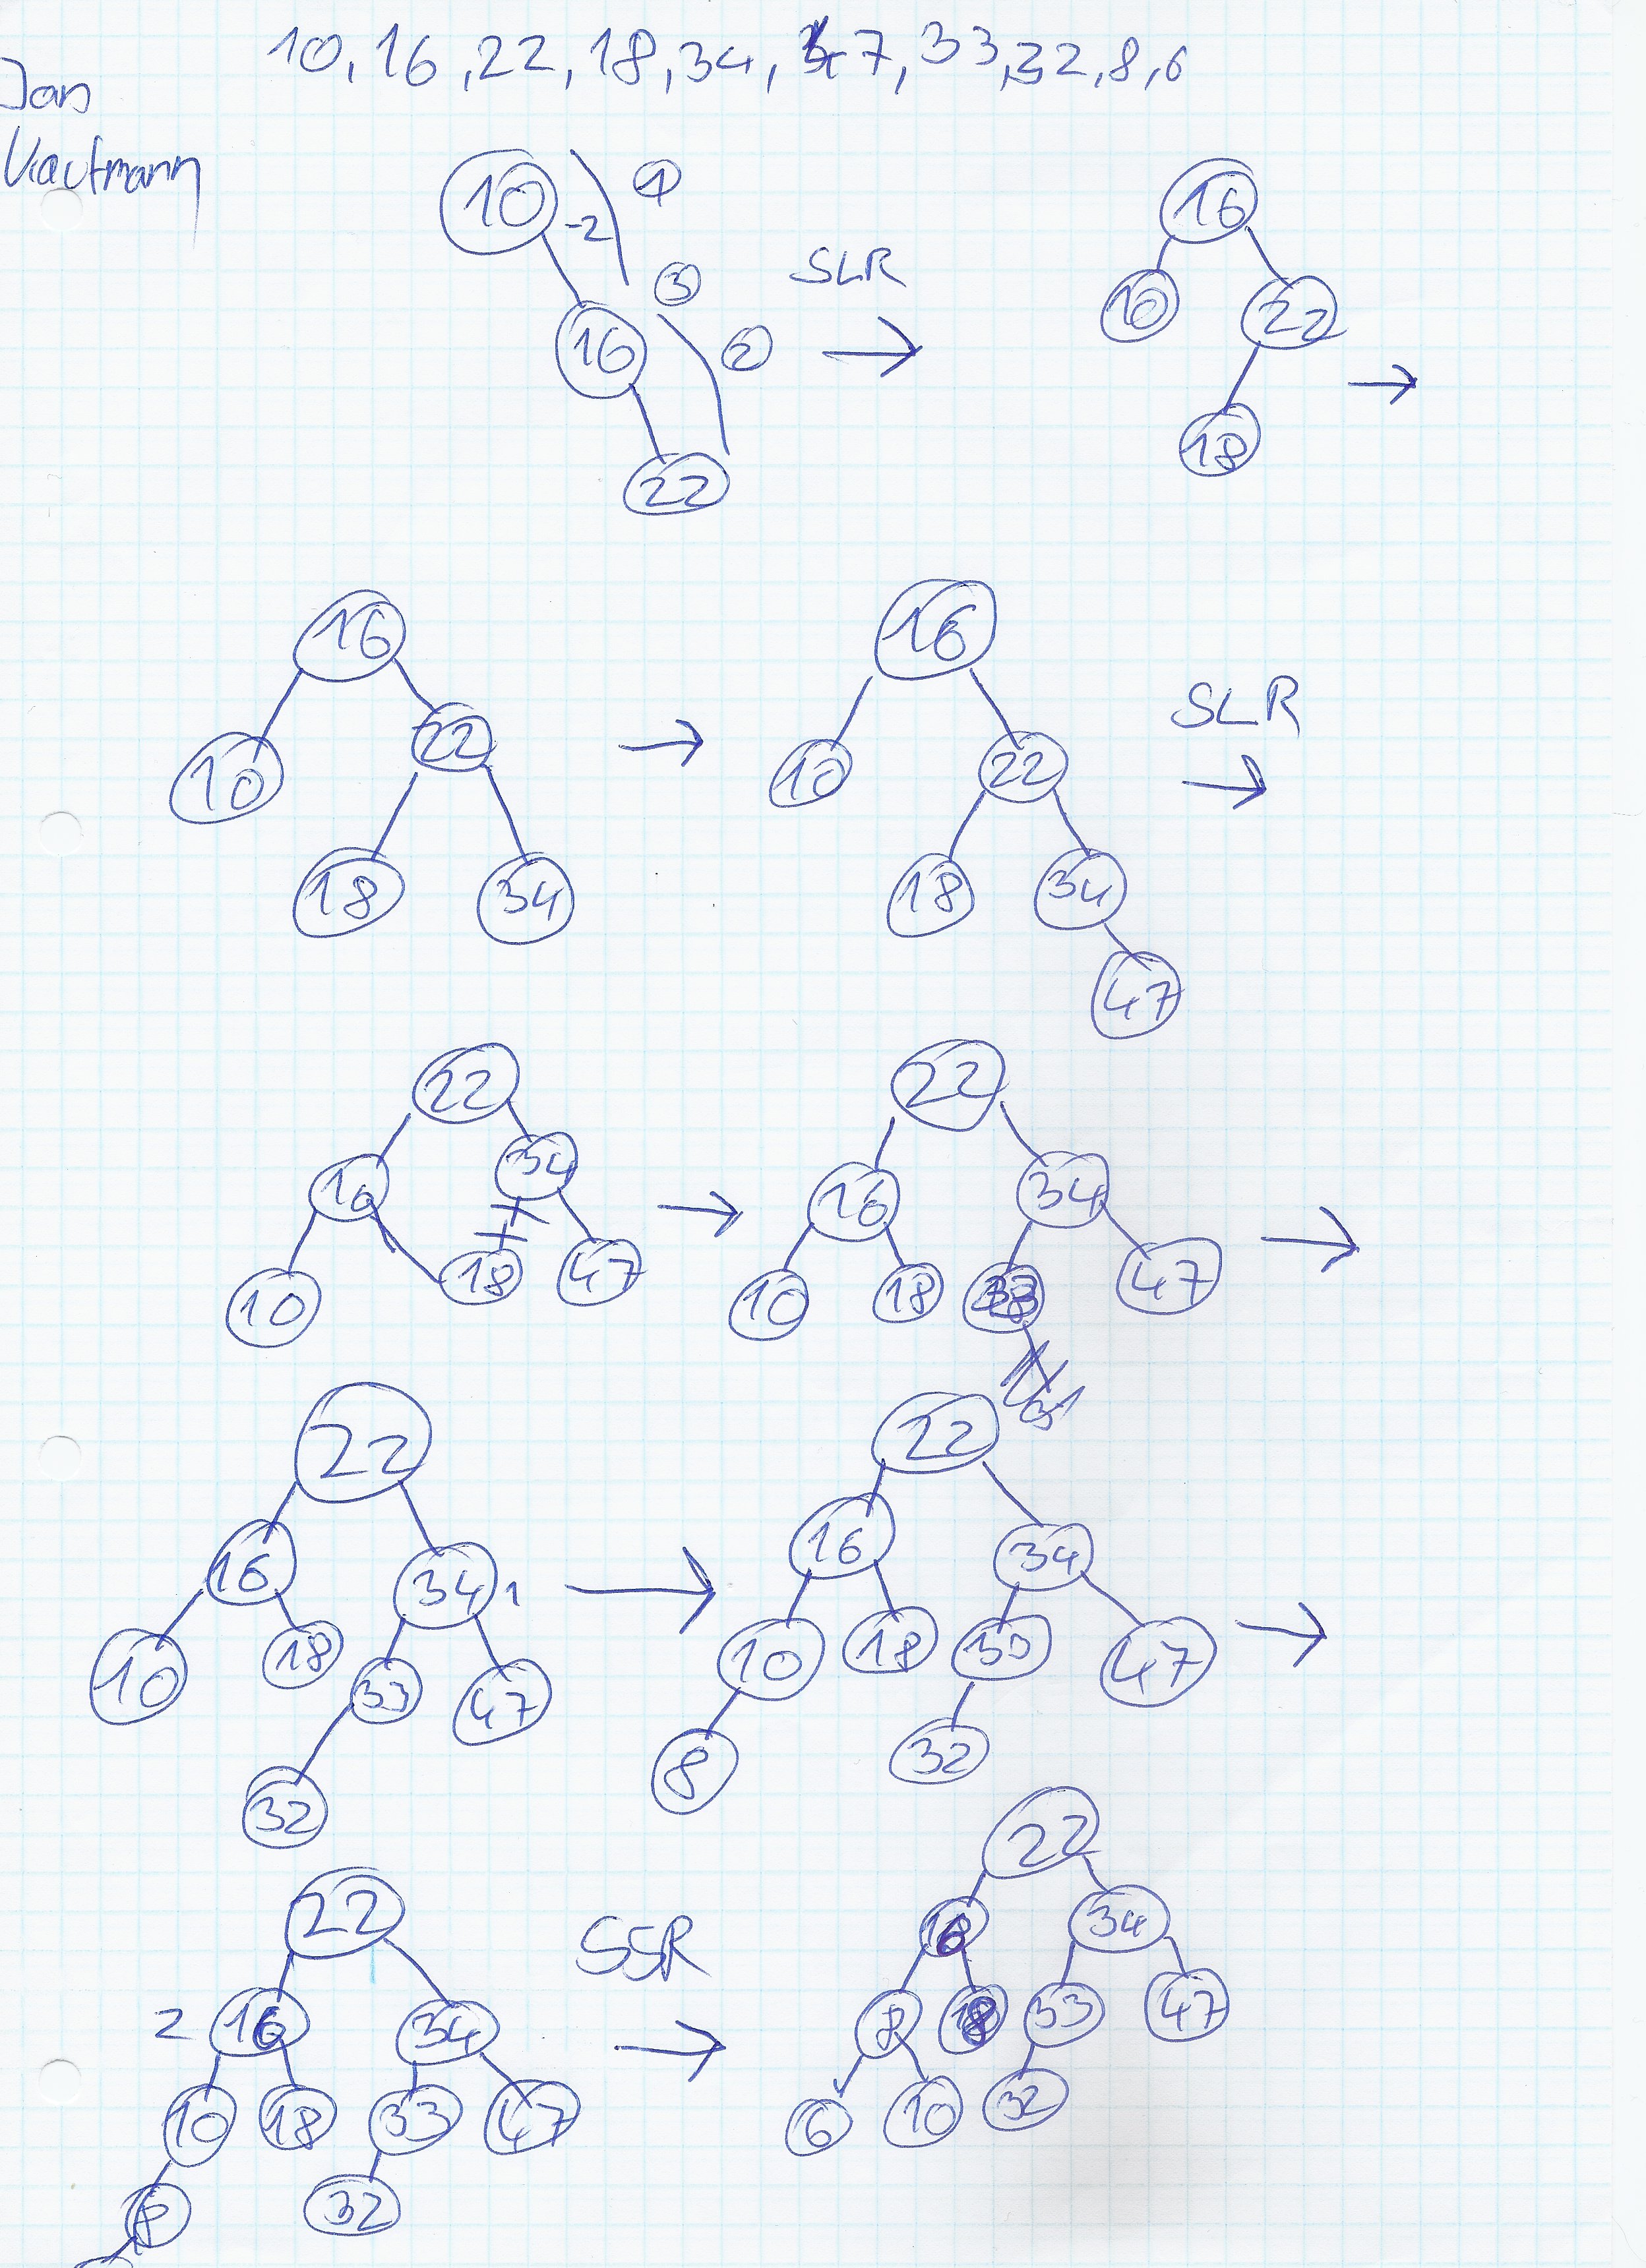 10, 16, 22, 18, 34, 47, 33, 32, 8, 6
Jan
10 -2 1
16 3 2
22
SLR
16
10 22
18
16
10 22
18 34
16
10 22
18 34
47
SLR
22
16 34
10 18 47
22
16 34
10 18 33 47
22
16 34 1
10 18 33 47
32
22
16 34
10 18 33 47
8 32
22
2 16 34
10 18 33 47
8 32
SSR
22
16 34
8 18 33 47
6 10 32